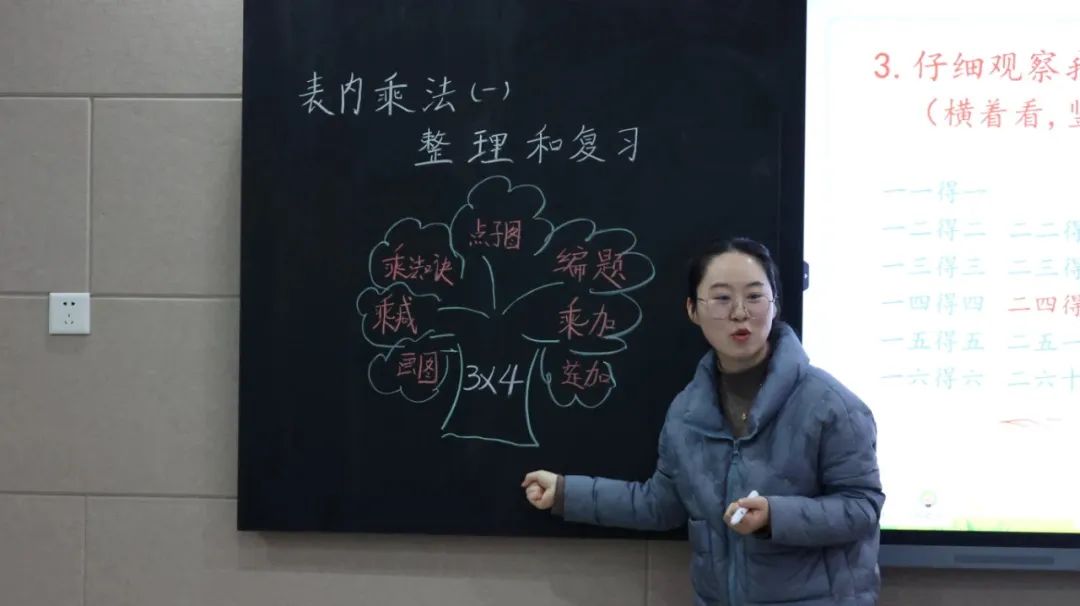 表内乘法(一)
整理和复习
点子图
乘法口诀
编题
乘减
乘加
画图
3×4
连加
3.仔细观察
(横着看,竖
一一得一
一二得二 二二得
一三得三 二三得
一四得四 二四得
一五得五 二五一
一六得六 二六十